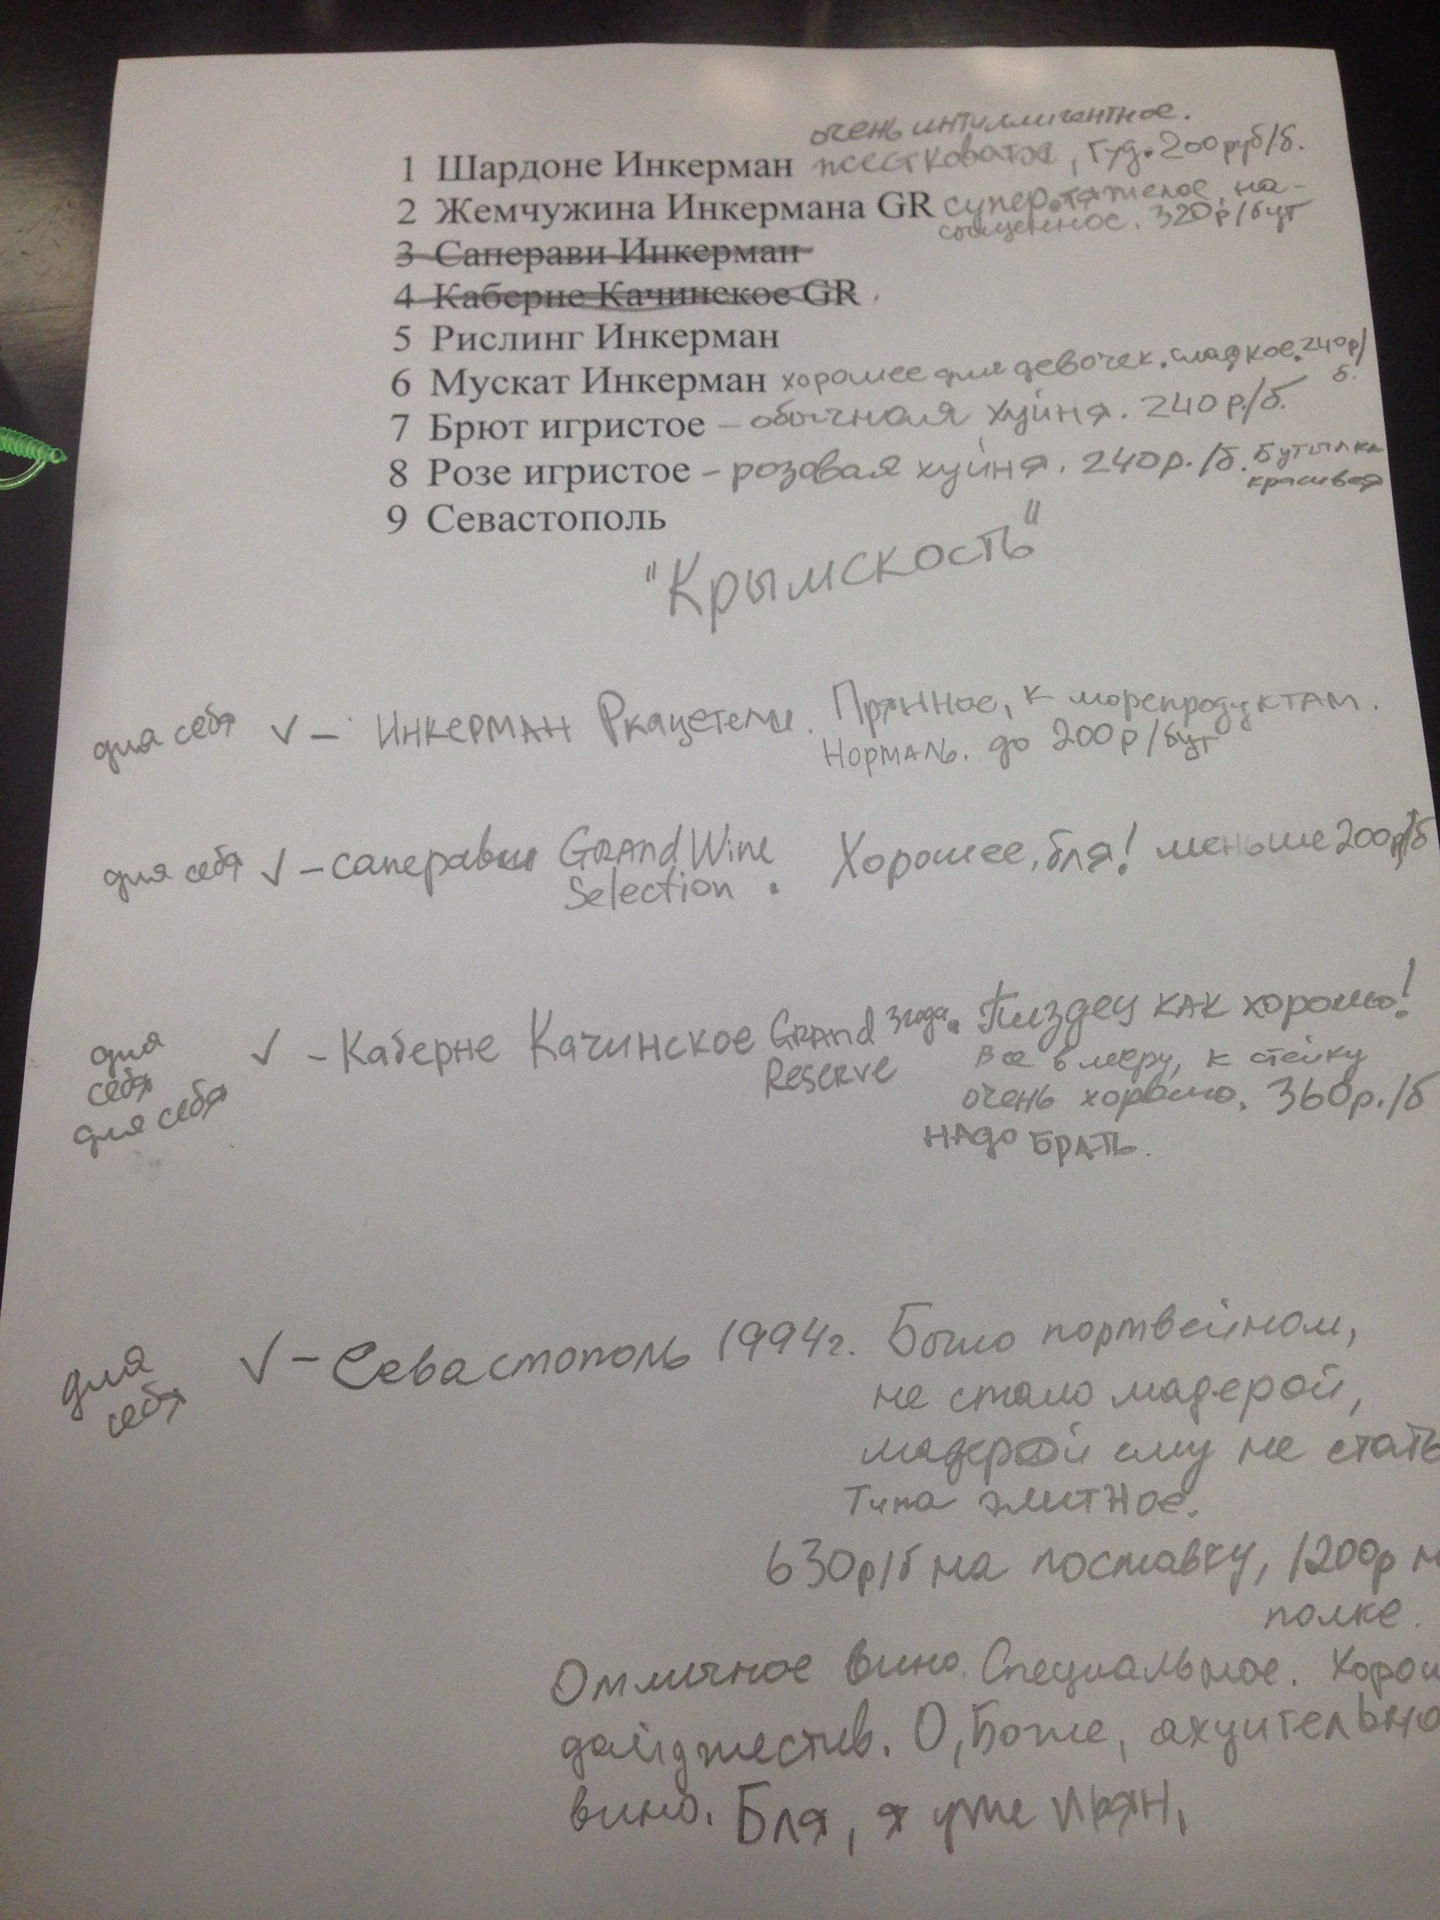 очень интиллигентное.
1 Шардоне Инкерман жестковатое, гуд. 200руб/б.
2 Жемчужина Инкермана GR супер.тяжелое, на-
сыщенное. 320р/бут
3 Саперави Инкерман
4 Каберне Качинское GR
5 Рислинг Инкерман
6 Мускат Инкерман хорошее для девочек. сладкое. 240р/
б.
7 Брют игристое – обычная хуйня. 240р./б.
8 Розе игристое – розовая хуйня. 240р./б. Бутылка
красивая
9 Севастополь
"Крымскость"
для себя √ – Инкерман Ркацетели. Пряное, к морепродуктам.
Нормаль. до 200р/бут
для себя √ – саперави Grand Wine Хорошее, бля! меньше 200р/б
Selection.
для √ – Каберне Качинское Grand 3года. Пиздец как хорошо!
себя Reserve Все в меру, к стейку
для себя очень хорошо. 360р./б
Надо брать.
для √ – Севастополь 1994г. Было портвейном,
себя не стало мадерой,
мадерой ему не стать
Типа элитное.
630р/б на поставку, 1200р н
полке.
Отличное вино. Специальное. Хорош
дайджестив. О, Боже, ахуительно
вино. Бля, я уже пьян,